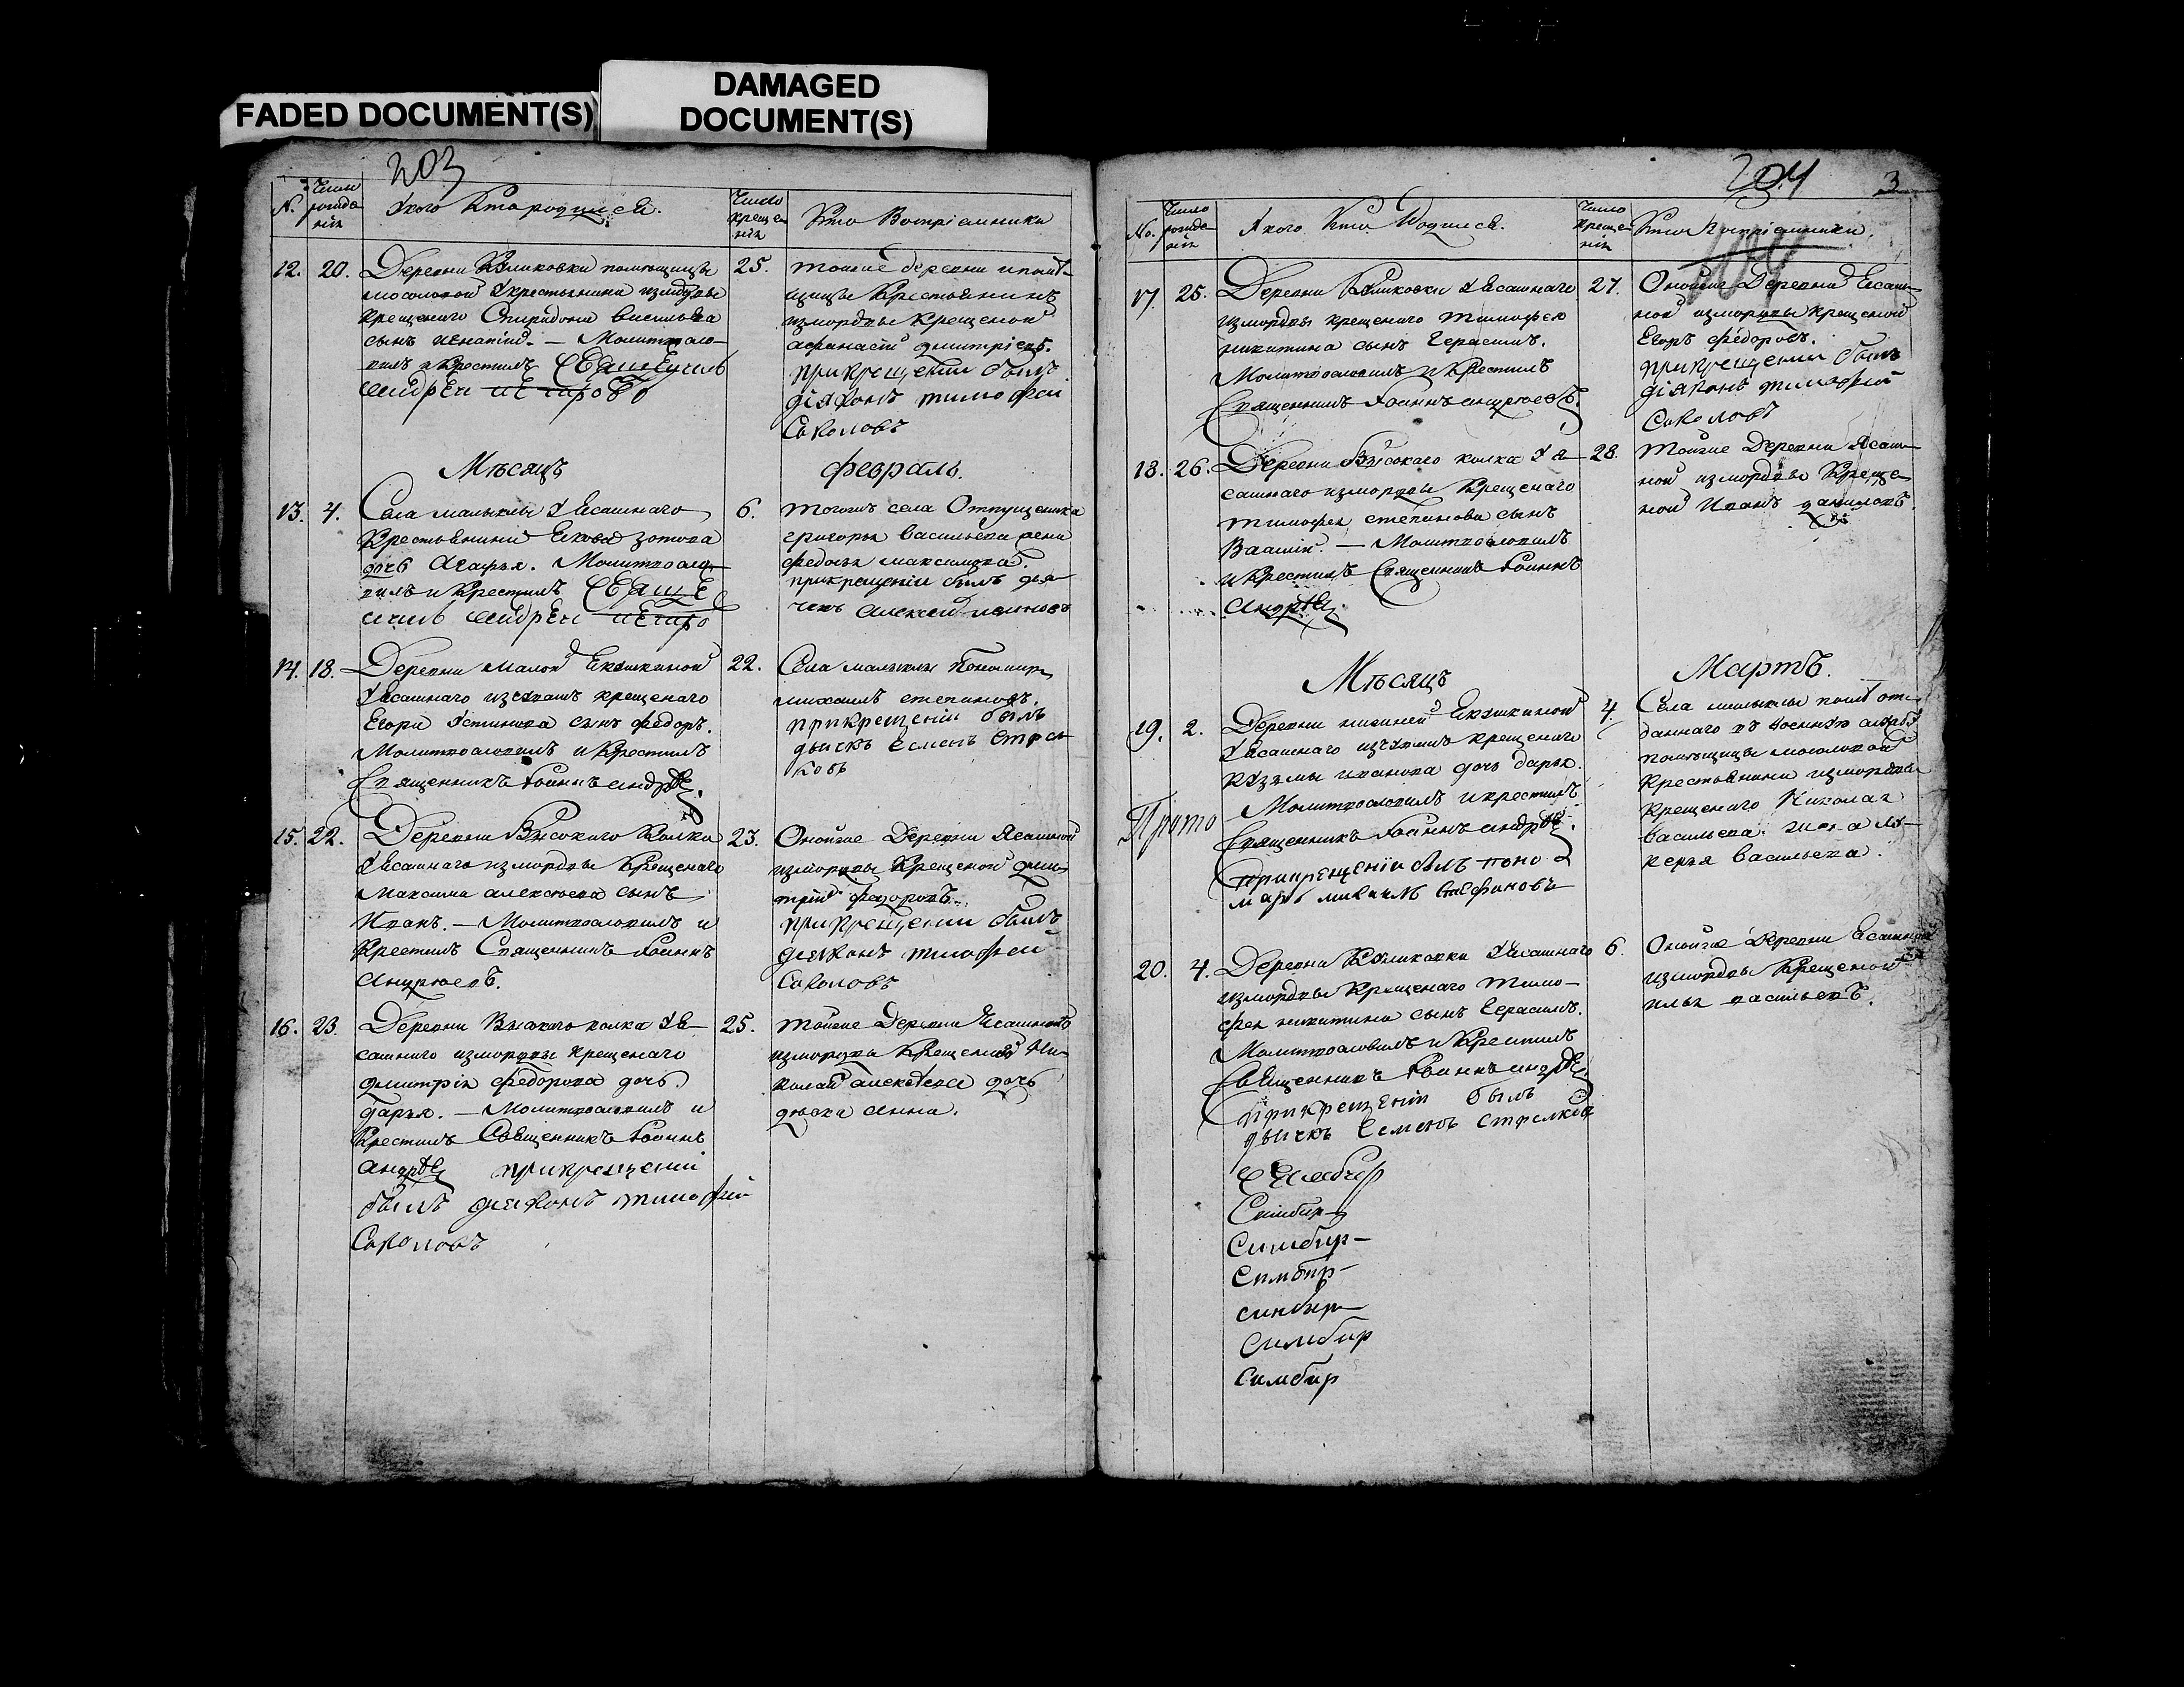 FADED DOCUMENT(S)
DAMAGED
DOCUMENT(S)
203
№.
Число
рожде
нія
У кого Кто родился.
Число
Креще
нія
Кто Воспріемники
12. 20.
Деревни Куликовки помещицы
мосоловой Укрестьянина измордвы
крещенаго Спиридона васильева
сынъ игнатій. — Молитвосло-
вилъ и Крестилъ
25.
тойже деревни
Крестьянинъ
измордвы Крещеной
афанасій дмитріевъ.
прикрещеніи былъ
діяконъ тимофей
Соколовъ
Мѣсяцъ
февраль.
13. 4.
Села малыклы УЯсашнаго
Крестьянина Якова зотова
дочь Агафья. Молитвосло-
вилъ и Крестилъ
6.
тогожъ села Отпущеника
григорья васильева жена
федосья максимова.
прикрещеніи былъ дья
чекъ алексей
14. 18.
Деревни малой Якушкиной
УЯсашнаго изчувашъ крещенаго
Егора Устинова сынъ федоръ.
Молитвословилъ и Крестилъ
Священникъ Іоаннъ андрѣе
22.
Села малыклы Пономарь
михаилъ степановъ.
прикрещеніи былъ
дьячкъ Семенъ Стрел
ковъ
15. 22.
Деревни Высокаго Колка
УЯсашнаго измордвы Крещенаго
Максима алексеева сынъ
Иванъ. — Молитвословилъ и
Крестилъ Священникъ Іоаннъ
Андреевъ.
23.
Онойже Деревни Ясашной
измордвы Крещеной дми-
трій федоровъ.
прикрещеніи былъ
діяконъ тимофеи
Соколовъ
16. 23.
Деревни Высокаго колка УЯ-
сашнаго измордвы крещенаго
дмитрія федорова дочь
дарья. — Молитвословилъ и
Крестилъ Священникъ Іоаннъ
андрѣе прикрещеніи
былъ діяконъ тимофей
Соколовъ
25.
тойже Деревни Ясашнаго
измордвы Крещенаго Ни-
колая алексѣева дочь
девка анна.
204
3
№.
Число
рожде
нія
У кого Кто Родился.
Число
креще
нія
Кто Воспріемники.
104
17. 25.
Деревни Куликовки УЯсашнаго
измордвы крещенаго тимофея
никитина сынъ Герасимъ.
Молитвословилъ и Крестилъ
Священникъ Іоаннъ андреевъ.
27.
Онойже Деревни Ясаш-
ной измордвы крещеной
Егоръ федоровъ.
прикрещеніи былъ
діяконъ тимофей
Соколовъ
18. 26.
Деревни Высокаго колка Уя-
сашнаго измордвы Крещенаго
тимофея степанова сынъ
Василій. — Молитвословилъ
и Крестилъ Священникъ Іоаннъ
Андрѣе
28.
тойже Деревни Ясаш-
ной измордвы Креще-
ной Иванъ даниловъ.
Мѣсяцъ
Мартъ.
19. 2.
Деревни нижней Якушкиной
УЯсашнаго изчувашъ крещенаго
Кузьмы иванова дочь дарья.
Молитвословилъ и крестилъ
Священникъ Іоаннъ андрѣе.
прикрещеніи былъ поно
марь михаилъ Стефановъ
Прото
4.
Села малыклы отъ-
даннаго въ военную службу
помещицы мосоловой
Крестьянина измордвы
Крещенаго Николая
Васильева жена лу-
керья васильева.
20. 4.
Деревни Куликовки УЯсашнаго
измордвы Крещенаго тимо-
фея никитина сынъ Герасимъ.
Молитвословилъ и Крестилъ
Священникъ Іоаннъ андрѣе
прикрещеніи былъ
дьячкъ Семенъ Стрелков
6.
Онойже Деревни Ясашной
измордвы Крещеной
илья васильевъ.
Симбир
Симбир-
Симбир-
синбир
Симбир
Симбир